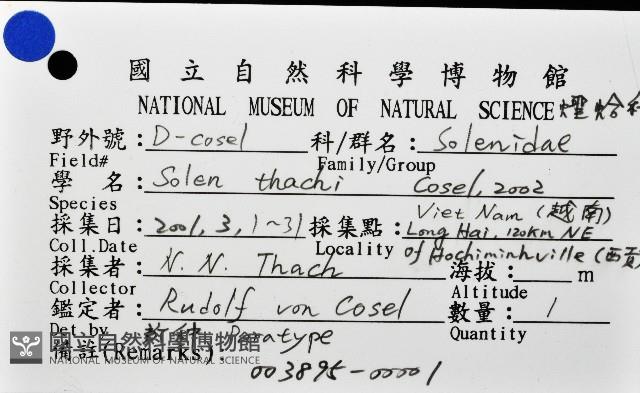 國立自然科學博物館
NATIONAL MUSEUM OF NATURAL SCIENCE
野外號：D-cosel 科/群名：Solenidae
Field# Family/Group
學 名：Solen thachi Cosel, 2002
Species
採集日：2001, 3, 1~31 採集點：Viet Nam (越南)
Long Hai, 120Km NE
Coll.Date Locality of Hochiminhville (西貢)
採集者：N. N. Thach 海拔：____m
Collector Altitude
鑑定者：Rudolf von Cosel 數量：1
Det.by Quantity
備註(Remarks) Paratype
國立自然科學博物館
NATIONAL MUSEUM OF NATURAL SCIENCE
003895-00001